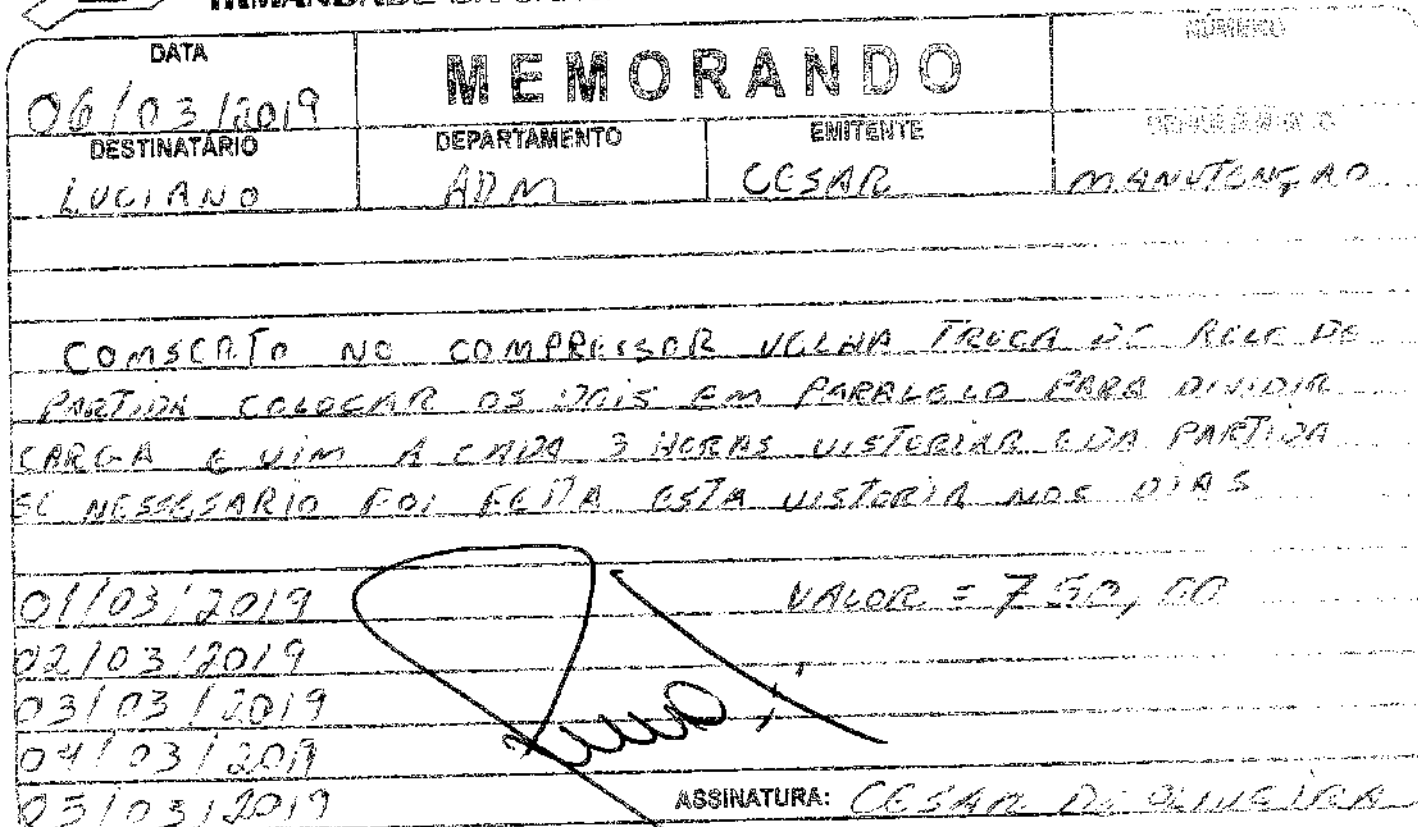 DATA
MEMORANDO
NÚMERO
06/03/2019
DESTINATÁRIO
DEPARTAMENTO
EMITENTE
LUCIANO
ADM
CESAR
MANUTENÇAO
COMSCRTO NO COMPRESSOR VELHA TROCA DE RELE DE
PARTIDA COLOCAR OS DOIS EM PARALELO PARA DIVIDIR
CARGA E VIM A CADA 3 HORAS VISTORIAR E DA PARTIDA
SE NESSESARIO FOI FEITA ESTA VISTORIA NOS DIAS
01/03/2019
VALOR = 750,00
02/03/2019
03/03/2019
04/03/2019
05/03/2019
ASSINATURA: CESAR DE OLIVEIRA